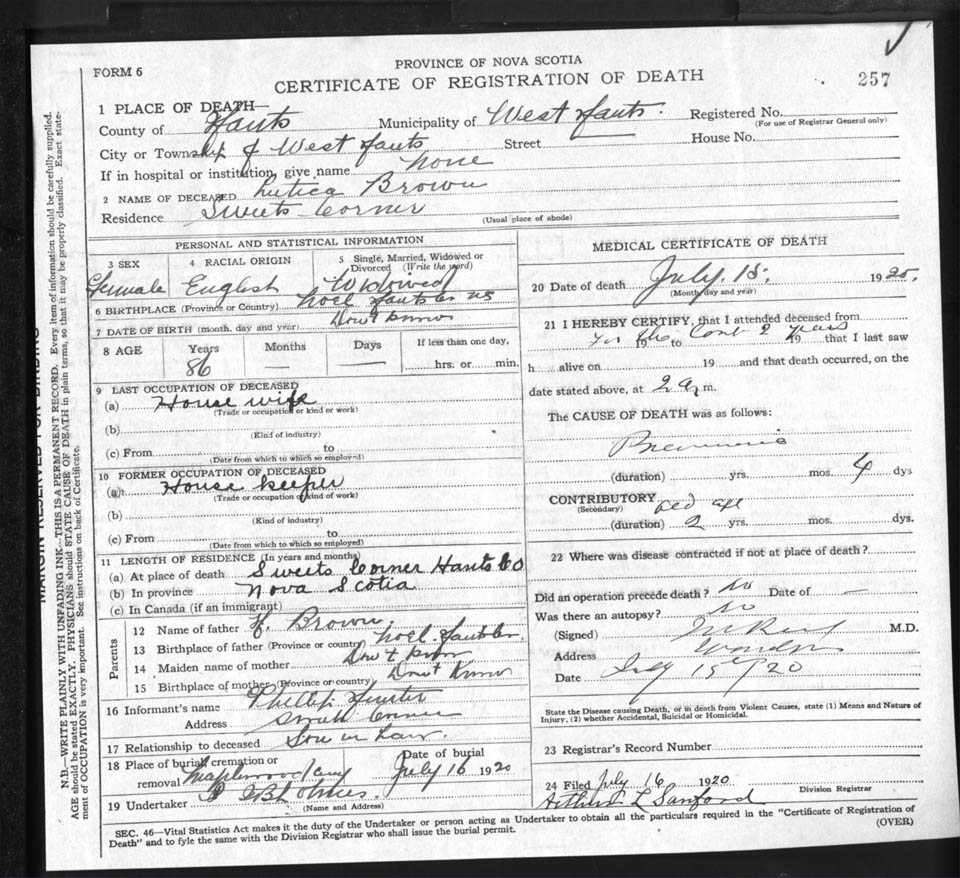 FORM 6
PROVINCE OF NOVA SCOTIA
CERTIFICATE OF REGISTRATION OF DEATH
257
1 PLACE OF DEATH—
County of Hants Municipality of West Hants. Registered No.
(For use of Registrar General only)
City or Township of West Hants Street House No.
If in hospital or institution, give name None
2 NAME OF DECEASED Brown
Residence Sweets Corner
(Usual place of abode)
PERSONAL AND STATISTICAL INFORMATION
3 SEX 4 RACIAL ORIGIN 5 Single, Married, Widowed or Divorced (Write the word)
Female English Widowed
6 BIRTHPLACE (Province or Country) Noel Hants Co NS
7 DATE OF BIRTH (month, day and year) Don't know
8 AGE Years Months Days If less than one day,
86 — — hrs. or min.
9 LAST OCCUPATION OF DECEASED
(a) House wife
(Trade or occupation or kind or work)
(b)
(Kind of industry)
(c) From to
(Date from which to which so employed)
10 FORMER OCCUPATION OF DECEASED
(a) House keeper
(Trade or occupation or kind of work)
(b)
(Kind of industry)
(c) From to
(Date from which to which so employed)
11 LENGTH OF RESIDENCE (In years and months)
(a) At place of death Sweets Corner Hants Co
(b) In province Nova Scotia
(c) In Canada (if an immigrant)
Parents
12 Name of father Brown
13 Birthplace of father (Province or country) Noel. Hants Co.
14 Maiden name of mother Don't know
15 Birthplace of mother (Province or country) Don't Know
16 Informant's name Phillip
Address Corner
17 Relationship to deceased Son in Law.
18 Place of burial, cremation or removal Maplewood Date of burial July 16 1920
19 Undertaker
(Name and Address)
MEDICAL CERTIFICATE OF DEATH
20 Date of death July. 15. 1920.
(Month, day and year)
21 I HEREBY CERTIFY, that I attended deceased from
for the last 2 years
19 to 19 that I last saw
h alive on 19 and that death occurred, on the
date stated above, at 2 a m.
The CAUSE OF DEATH was as follows:
Pneumonia
(duration) yrs. mos. 4 dys
CONTRIBUTORY old age
(Secondary)
(duration) 2 yrs. mos. dys.
22 Where was disease contracted if not at place of death?
Did an operation precede death? No Date of —
Was there an autopsy? No
(Signed) M.D.
Address Windsor
Date July 15 1920
State the Disease causing Death, or in death from Violent Causes, state (1) Means and Nature of
Injury, (2) whether Accidental, Suicidal or Homicidal.
23 Registrar's Record Number
24 Filed July 16 1920
Division Registrar
Arthur L Sanford
SEC. 46—Vital Statistics Act makes it the duty of the Undertaker or person acting as Undertaker to obtain all the particulars required in the "Certificate of Registration of
Death" and to fyle the same with the Division Registrar who shall issue the burial permit.
(OVER)
MARGIN RESERVED FOR BINDING
N.B.—WRITE PLAINLY WITH UNFADING INK—THIS IS A PERMANENT RECORD. Every item of information should be carefully supplied.
AGE should be stated EXACTLY. PHYSICIANS should STATE CAUSE OF DEATH in plain terms, so that it may be properly classified. Exact state-
ment of OCCUPATION is very important. See instructions on back of Certificate.